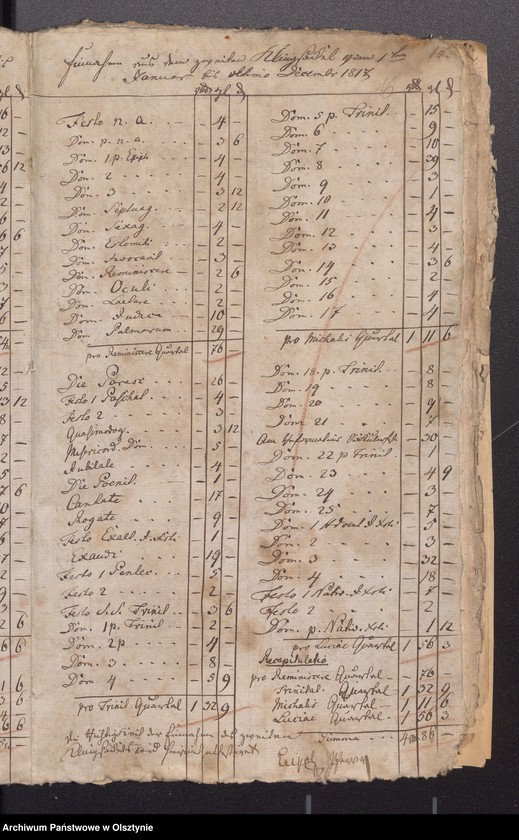 Einnahm aus dem zweiten Klingsäckel vom 1ten
Januar bis ultimo December 1818
Festo n. a. - 4 -
Dom. p. n. a. - 3 6
Dom. 1 p. Epiph. - 4 -
Dom. 2 - 4 -
Dom. 3 - 3 12
Dom. Septuag. - 2 12
Dom. Sexag. - 4 -
Dom. Estomihi - 2 -
Dom. Invocavit - 3 -
Dom. Reminiscere - 2 6
Dom. Oculi - 2 -
Dom. Laetare - 2 -
Dom. Judica - 10 -
Dom. Palmarum - 29 -
pro Reminiscere Quartal - 76 -
Die Parasc - 26 -
Festo 1 Paschal - 4 -
Festo 2 - 3 -
Quasimodog. - 3 12
Misericord. Dom. - 5 -
Jubilate - 4 -
Die Poenit. - 1 -
Cantate - 17 -
Rogate - 9 -
Festo - 1 -
Exaudi - 19 -
Festo 1 Pentec. - 5 -
Festo 2 - 2 -
Festo Trinit - 3 6
Dom. 1 p. Trinit - 2 -
Dom. 2 p - 4 -
Dom. 3 - 8 -
Dom 4 - 5 9
pro Trinit Quartal 1 32 9
Dom. 5 p. Trinit - 15 -
Dom. 6 - 9 -
Dom. 7 - 10 -
Dom. 8 - 39 -
Dom. 9 - 3 -
Dom. 10 - 1 -
Dom. 11 - 4 -
Dom. 12 - 3 -
Dom. 13 - 4 -
Dom. 14 - 3 6
Dom. 15 - 2 -
Dom. 16 - 4 -
Dom. 17 - 4 -
pro Michalis Quartal 1 11 6
Dom. 18. p. Trinit - 8 -
Dom. 19 - 8 -
Dom. 20 - 9 -
Dom 21 - 7 -
Am - 30 -
Dom. 22 p Trinit - 1 -
Dom. 23 - 4 9
Dom. 24 - 3 -
Dom. 25 - 7 -
Dom. 1 Advent - 5 -
Dom. 2 - 3 -
Dom. 3 - 32 -
Dom. 4 - 18 -
Festo 1 Nativ. - 7 -
Festo 2 - 2
Dom. p. Nativ. - 1 12
pro Luciae Quartal 1 56 3
Recapitulatio
pro Reminiscere Quartal - 76 -
Trinitat. Quartal - 1 32 9
Michalis Quartal - 1 11 6
Luciae Quartal - 1 56 3
Summa 4 86 -
Die Richtigkeit der Einnahm des zweiten
Klingsäckels wird